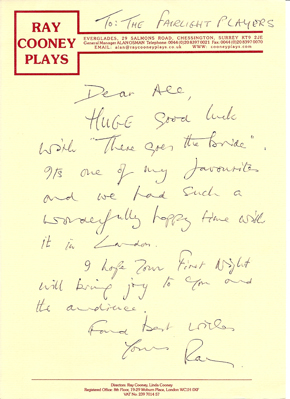 RAY
COONEY
PLAYS
To: THE FAIRLIGHT PLAYERS
EVERGLADES, 29 SALMONS ROAD, CHESSINGTON, SURREY KT9 2JE
General Manager ALAN OSMAN Telephone 0044 (0)20 8397 0021 Fax: 0044 (0)20 8397 0070
EMAIL: alan@raycooneyplays.co.uk WWW: raycooneyplays.com
Dear All,
HUGE good luck
with "There goes the Bride".
It's one of my favourites
and we had such a
wonderfully happy time with
it in London.
I hope your First Night
will bring joy to you and
the audience.
Fond best wishes
Yours Ray
Directors: Ray Cooney, Linda Cooney
Registered Office: 8th Floor, 19-29 Woburn Place, London WC1H 0XF
VAT No.